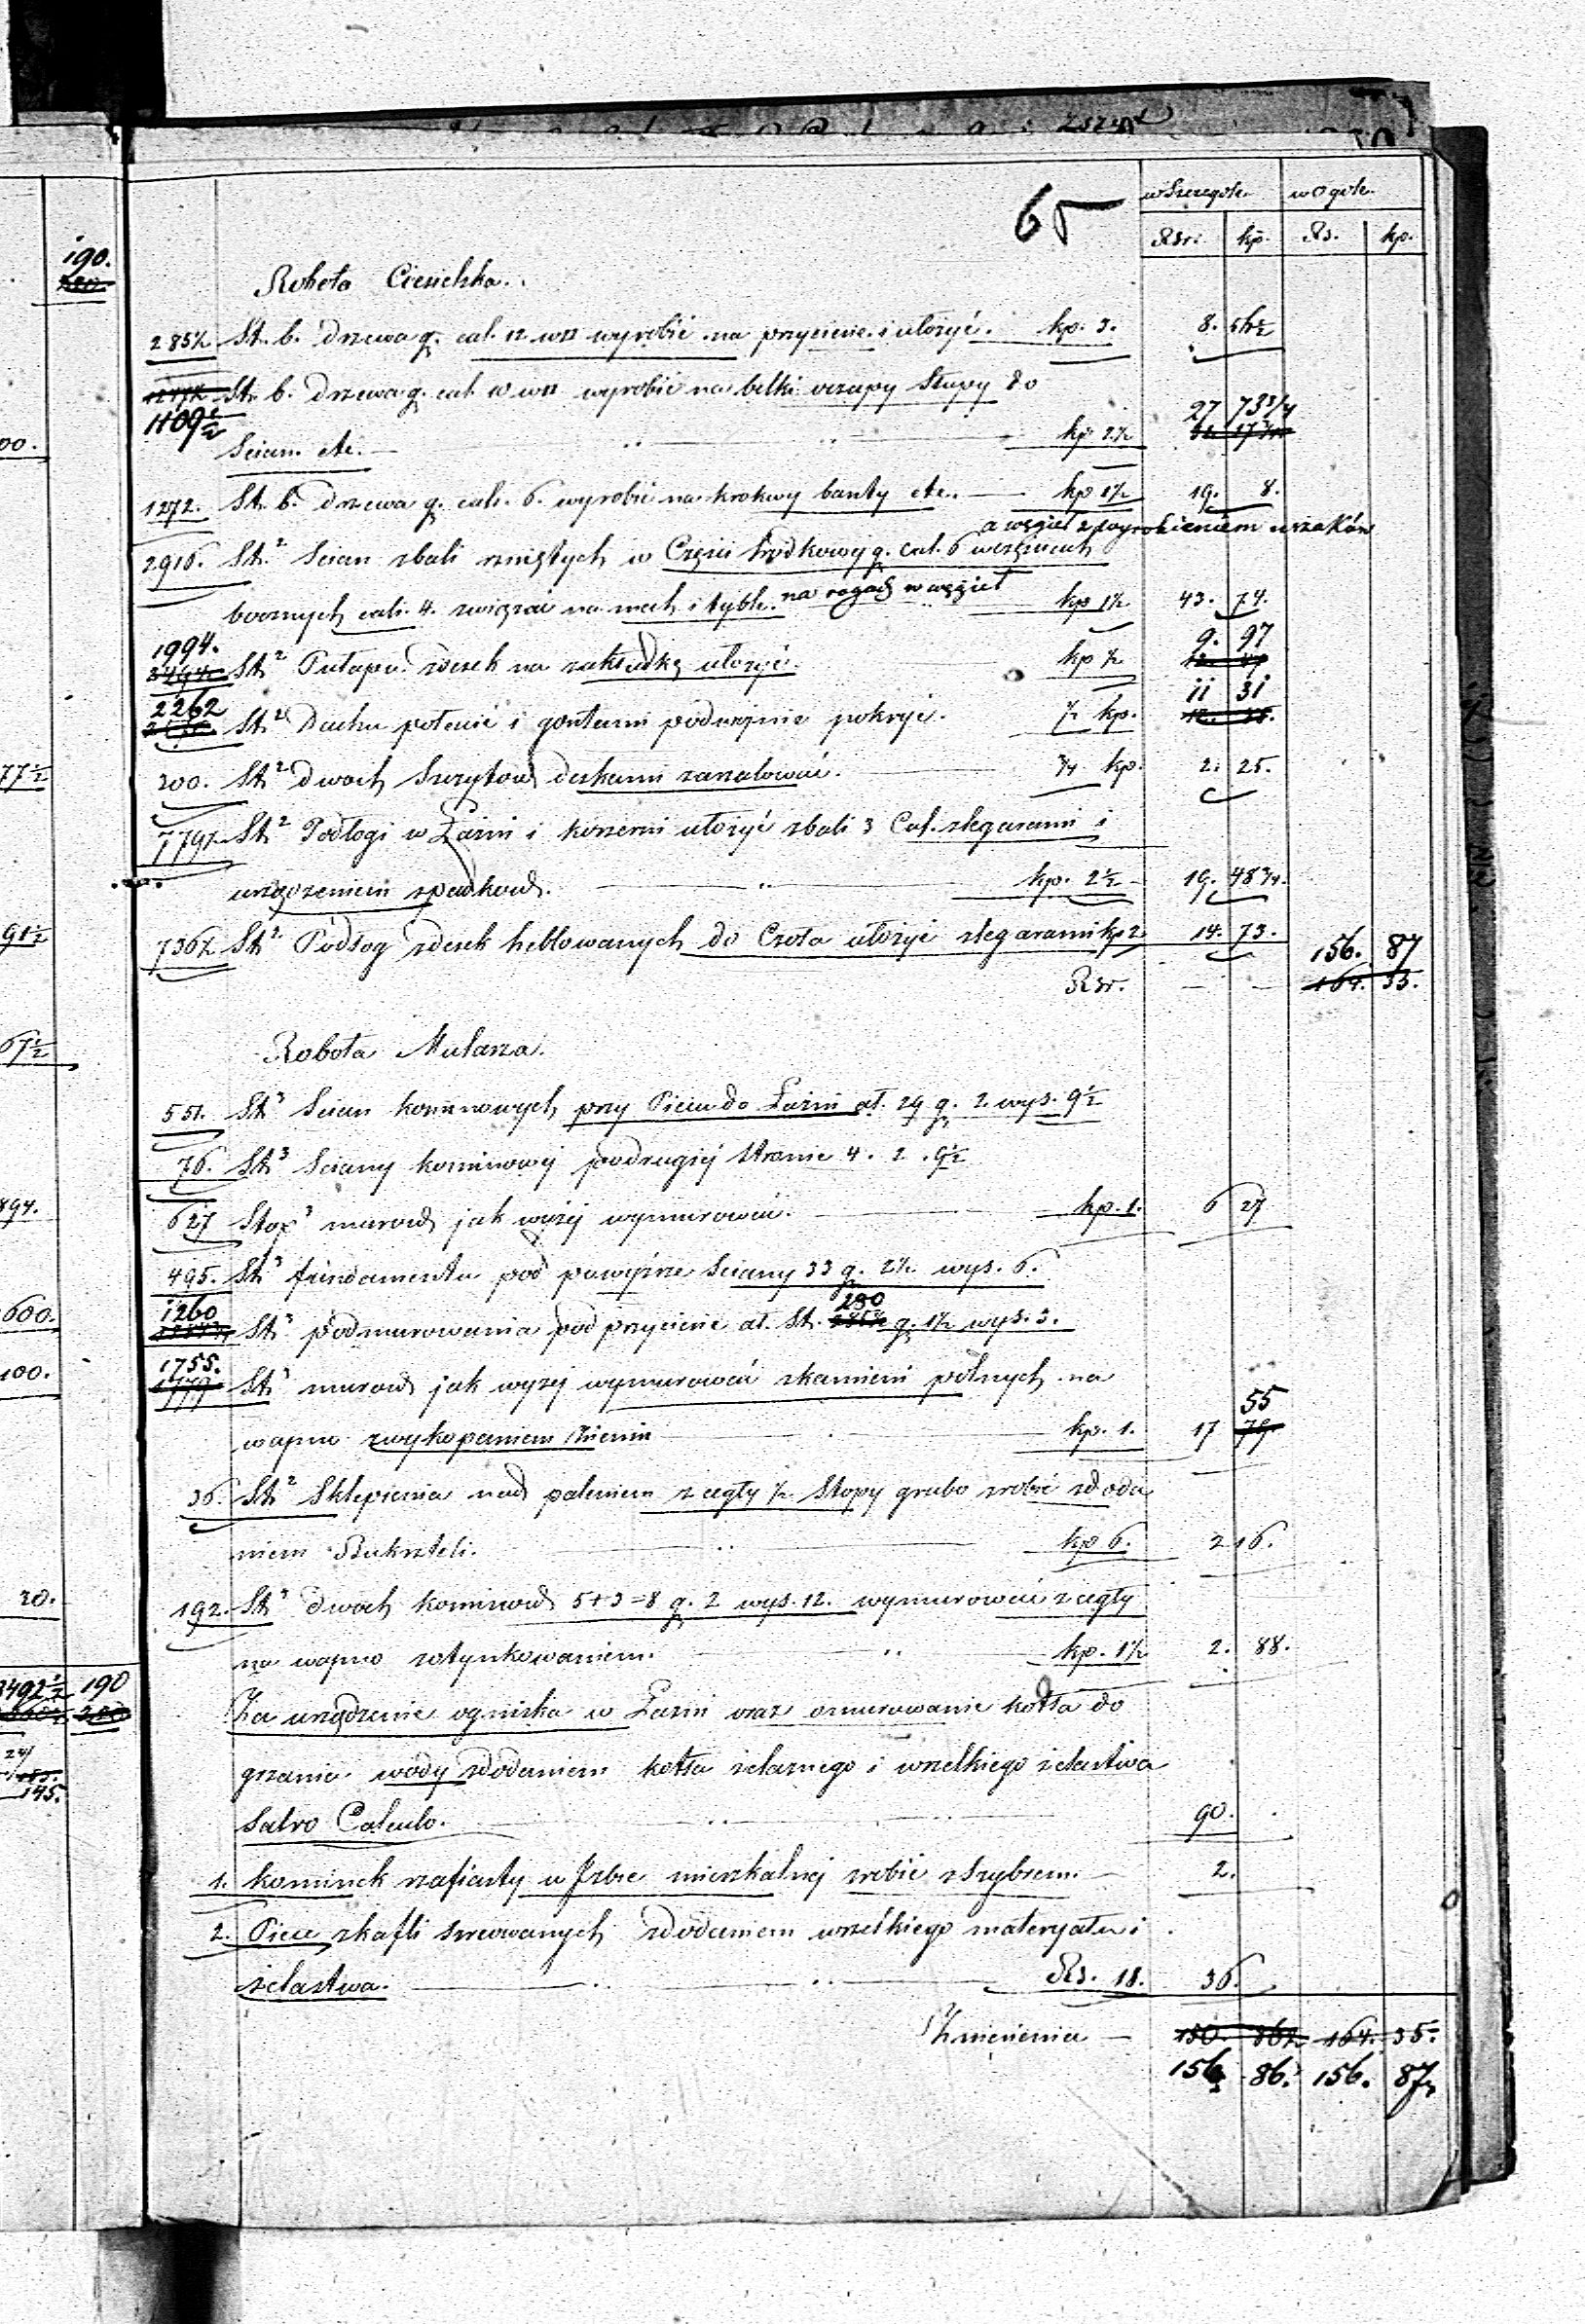 65
w Szczegole. w Ogole.
Rsr. kp. Rs. kp.
190.
Robota Ciesielska.
285½ St. b. drzewa g. cal. 12 wrz wyrobić na przyciesie i ułożyć. kp. 3. 8. 56½
1109½ St. b. drzewa g. cal. 10 wrz wyrobić na belki oczapy Słupy do
Scian etc. kp 2½ 27 73¾
1272. St. b. drzewa g. cali. 6. wyrobić na krokwy banty etc. kp 1½ 19. 8.
a węgieł z wyrobieniem uszaków
2916. St.² Scian zbali rzniętych w Części środkowej g. cal. 6 w częściach
bocznych cali. 4. związać na mech i tyble. na rogach w węgieł kp 1½ 43. 74.
1994. St² Pułapu zdesek na zakładkę ułożyć. kp ½ 9. 97
2262 St² Dachu połacić i gontami podwojnie pokryć. ½ kp. 11 31
300. St² dwoch Szczytow deskami zaszalować. ¾ kp. 2. 25.
779½ St² Podłogi w Łazni i koszerni ułożyć zbali 3 Cal. zlegarami i
urządzeniem spadkow. kp. 2½ 19. 48¾.
736½ St² Podłog zdesek heblowanych do Czoła ułożyć zlegarami kp 2 14. 73.
156. 87
Rsr. — — 164. 35.
Robota Mularza.
551. St³ Scian kominowych przy Piecu do Łazni dł. 29 g. 2. wys. 9½
76. St³ Sciany kominowej po drugiej stronie 4. 2. 9½
627 Stop³ murow jak wyżej wymurować. kp. 1. 6 27
495. St³ fundamentu pod powyższe Sciany 33 g. 2½ wys. 6.
1260 St³ podmurowania pod przyciesie dł. St. 280 g. 1½ wys. 3.
1755. St³ murow jak wyzej wymurować zkamieni polnych na
wapno zwykopaniem Ziemi kp. 1. 17 55
36. St² Sklepienia nad paleniem z cegły ½ Stopy grubo zrobić zdoda
niem Buksteli. kp 6. 2 16.
192. St³ dwoch kominow 5+3=8 g. 2 wys. 12. wymurować z cegły
na wapno zotynkowaniem. kp. 1½ 2. 88.
Za urządzenie ogniska w Łazni oraz omurowanie kotła do
grzania wody zdodaniem kotła żelaznego i wszelkiego żelastwa
Salvo Calculo. 90.
1. kominek szafiasty w Izbie mieszkalnej zrobić zszybrem. 2.
2. Piece zkafli szrewanych zdodaniem wszelkiego materyału i
żelastwa. Rs. 18. 36.
Zniesienia — 150. 86½ 164. 35.
156 86. 156. 87
00.
77½
91½
67½
894.
600.
100.
20.
3492½ 190
145.